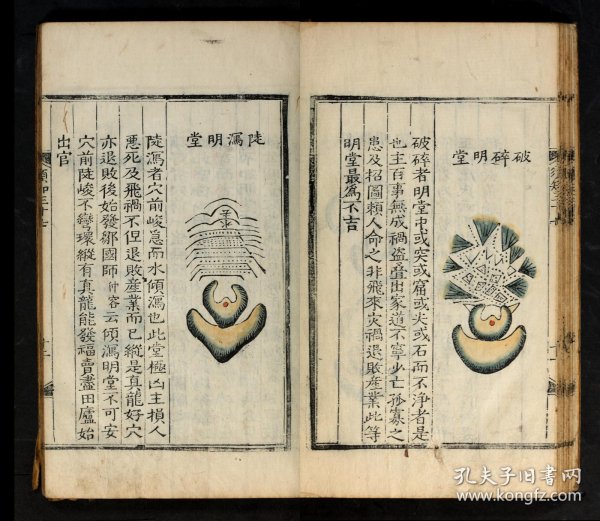 破碎明堂
破碎者明堂中或突或窟或尖或石而不淨者是
也主百事無成禍盜疊出家道不寧少亡孤寡之
患及招圖賴人命之非飛來災禍退敗産業此等
明堂最為不吉
陡瀉明堂
陡瀉者穴前峻急而水傾瀉也此堂極凶主損人
惡死及飛禍不但退敗産業而已縱是真龍好穴
亦退敗後始發鄒國師仲容云傾瀉明堂不可安
穴前陡峻不彎環縱有真龍能發福賣盡田廬始
出官
孔夫子旧书网
www.kongfz.com